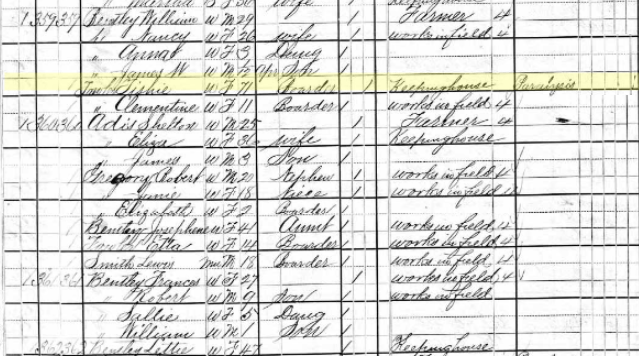 " Martha W F 30 wife Keepinghouse
1 359 357 Bentley William W M 29 Farmer 4
" Nancy W F 26 wife works in field 4
" Anna W F 3 Daug
" James W W M Son
Sinkie W F 71 Boarder 1 Keepinghouse Paralysis
" Clementine W F 11 Boarder 1 works in field 4
1 360 Adis Shelton W M 25 Farmer 4
" Eliza W F 36 wife 1 Keepinghouse
" James W M 3 Son 1
Gregory Robert W M 20 Nephew 1 works in field 4
" W F 18 Niece 1 works in field
" Elizabeth W F 2 Boarder 1
Bentley Josephene W F 41 Aunt 1 works in field 4
Etta W F 14 Boarder 1 works in field 4
Smith Lewis M 18 Boarder 1 works in field 4
1 361 Bentley Frances W F 27 1 works in field 4
" Robert W M 9 Son 1 works in field
" Sallie W F 5 Daug 1
" William W M 1 Son 1
1 362 Bentley Lettie W F 47 1 Keepinghouse